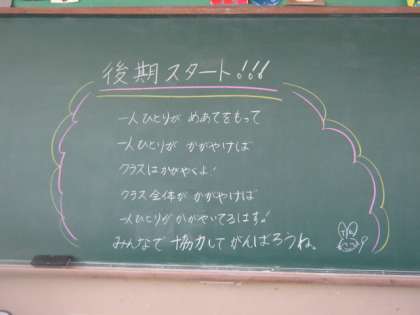 後期スタート!!!
一人ひとりが めあてをもって
一人ひとりが かがやけば
クラスはかがやくよ!
クラス全体が かがやけば
一人ひとりが かがやいてるはず!
みんなで 協力して がんばろうね。